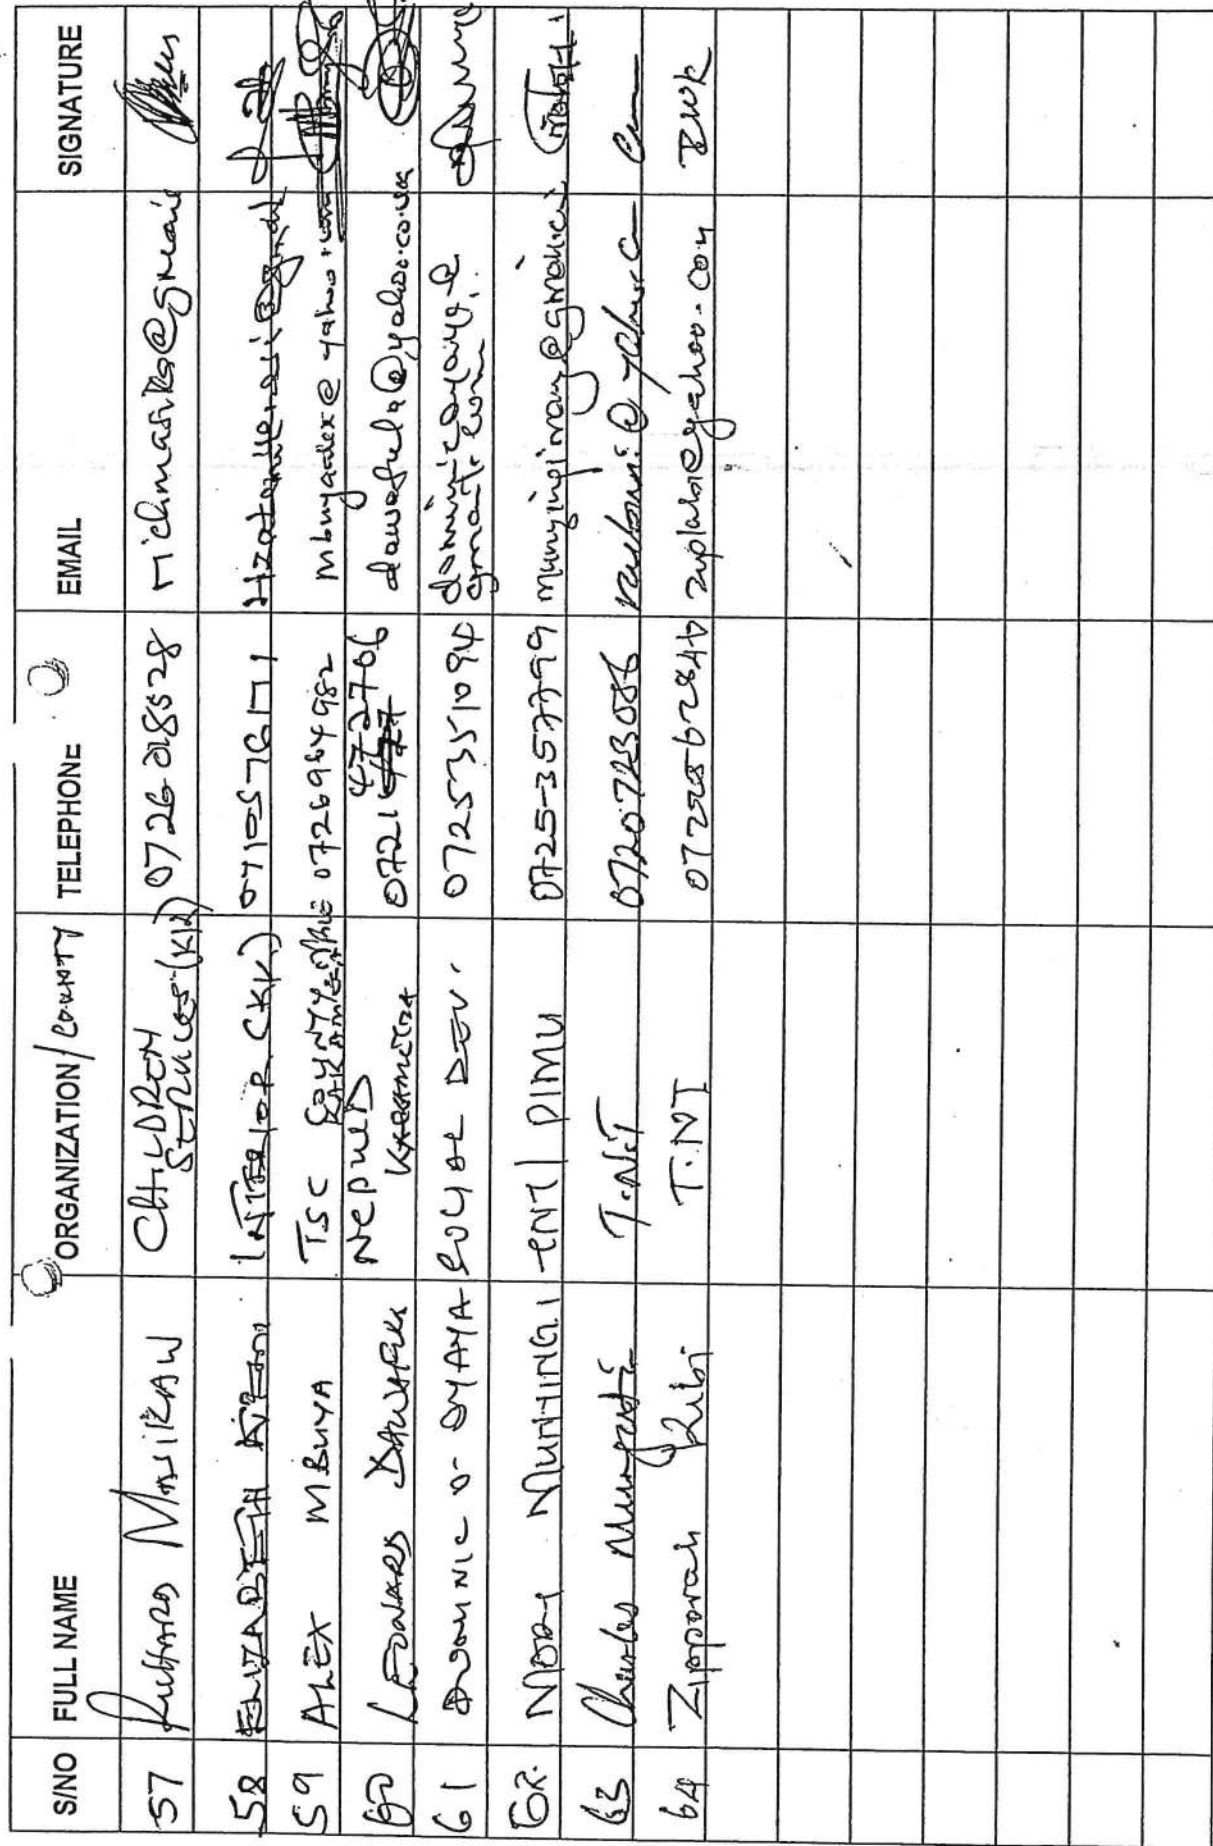 S/NO FULL NAME ORGANIZATION / COUNTY TELEPHONE EMAIL SIGNATURE
57 Richard Masikaw CHILDREN SERVICES (KK) 0726 218528 richmasiks@gmail
58 ELIZABETH INTERIOR (KK) 0710576171
59 ALEX MBUYA TSC COUNTY KAKAMEGA 0726964982 mbuyaalex@yahoo.com
60 LEONARD DAWAFULA NCPWD KAKAMEGA 0721 472706 dawafula@yahoo.co.uk
61 DOMINIC O. OYAYA SOCIAL DEV. 0725351094 dominicoyaya@
gmail.com
62. MARY MUNYINGI TNT / PIMU 0725-357799 munyingimary@gmail.c
63 Charles T.N.T 0720723086
64 Zipporah Rubi T.NT ziplabs@yahoo.com ZWK